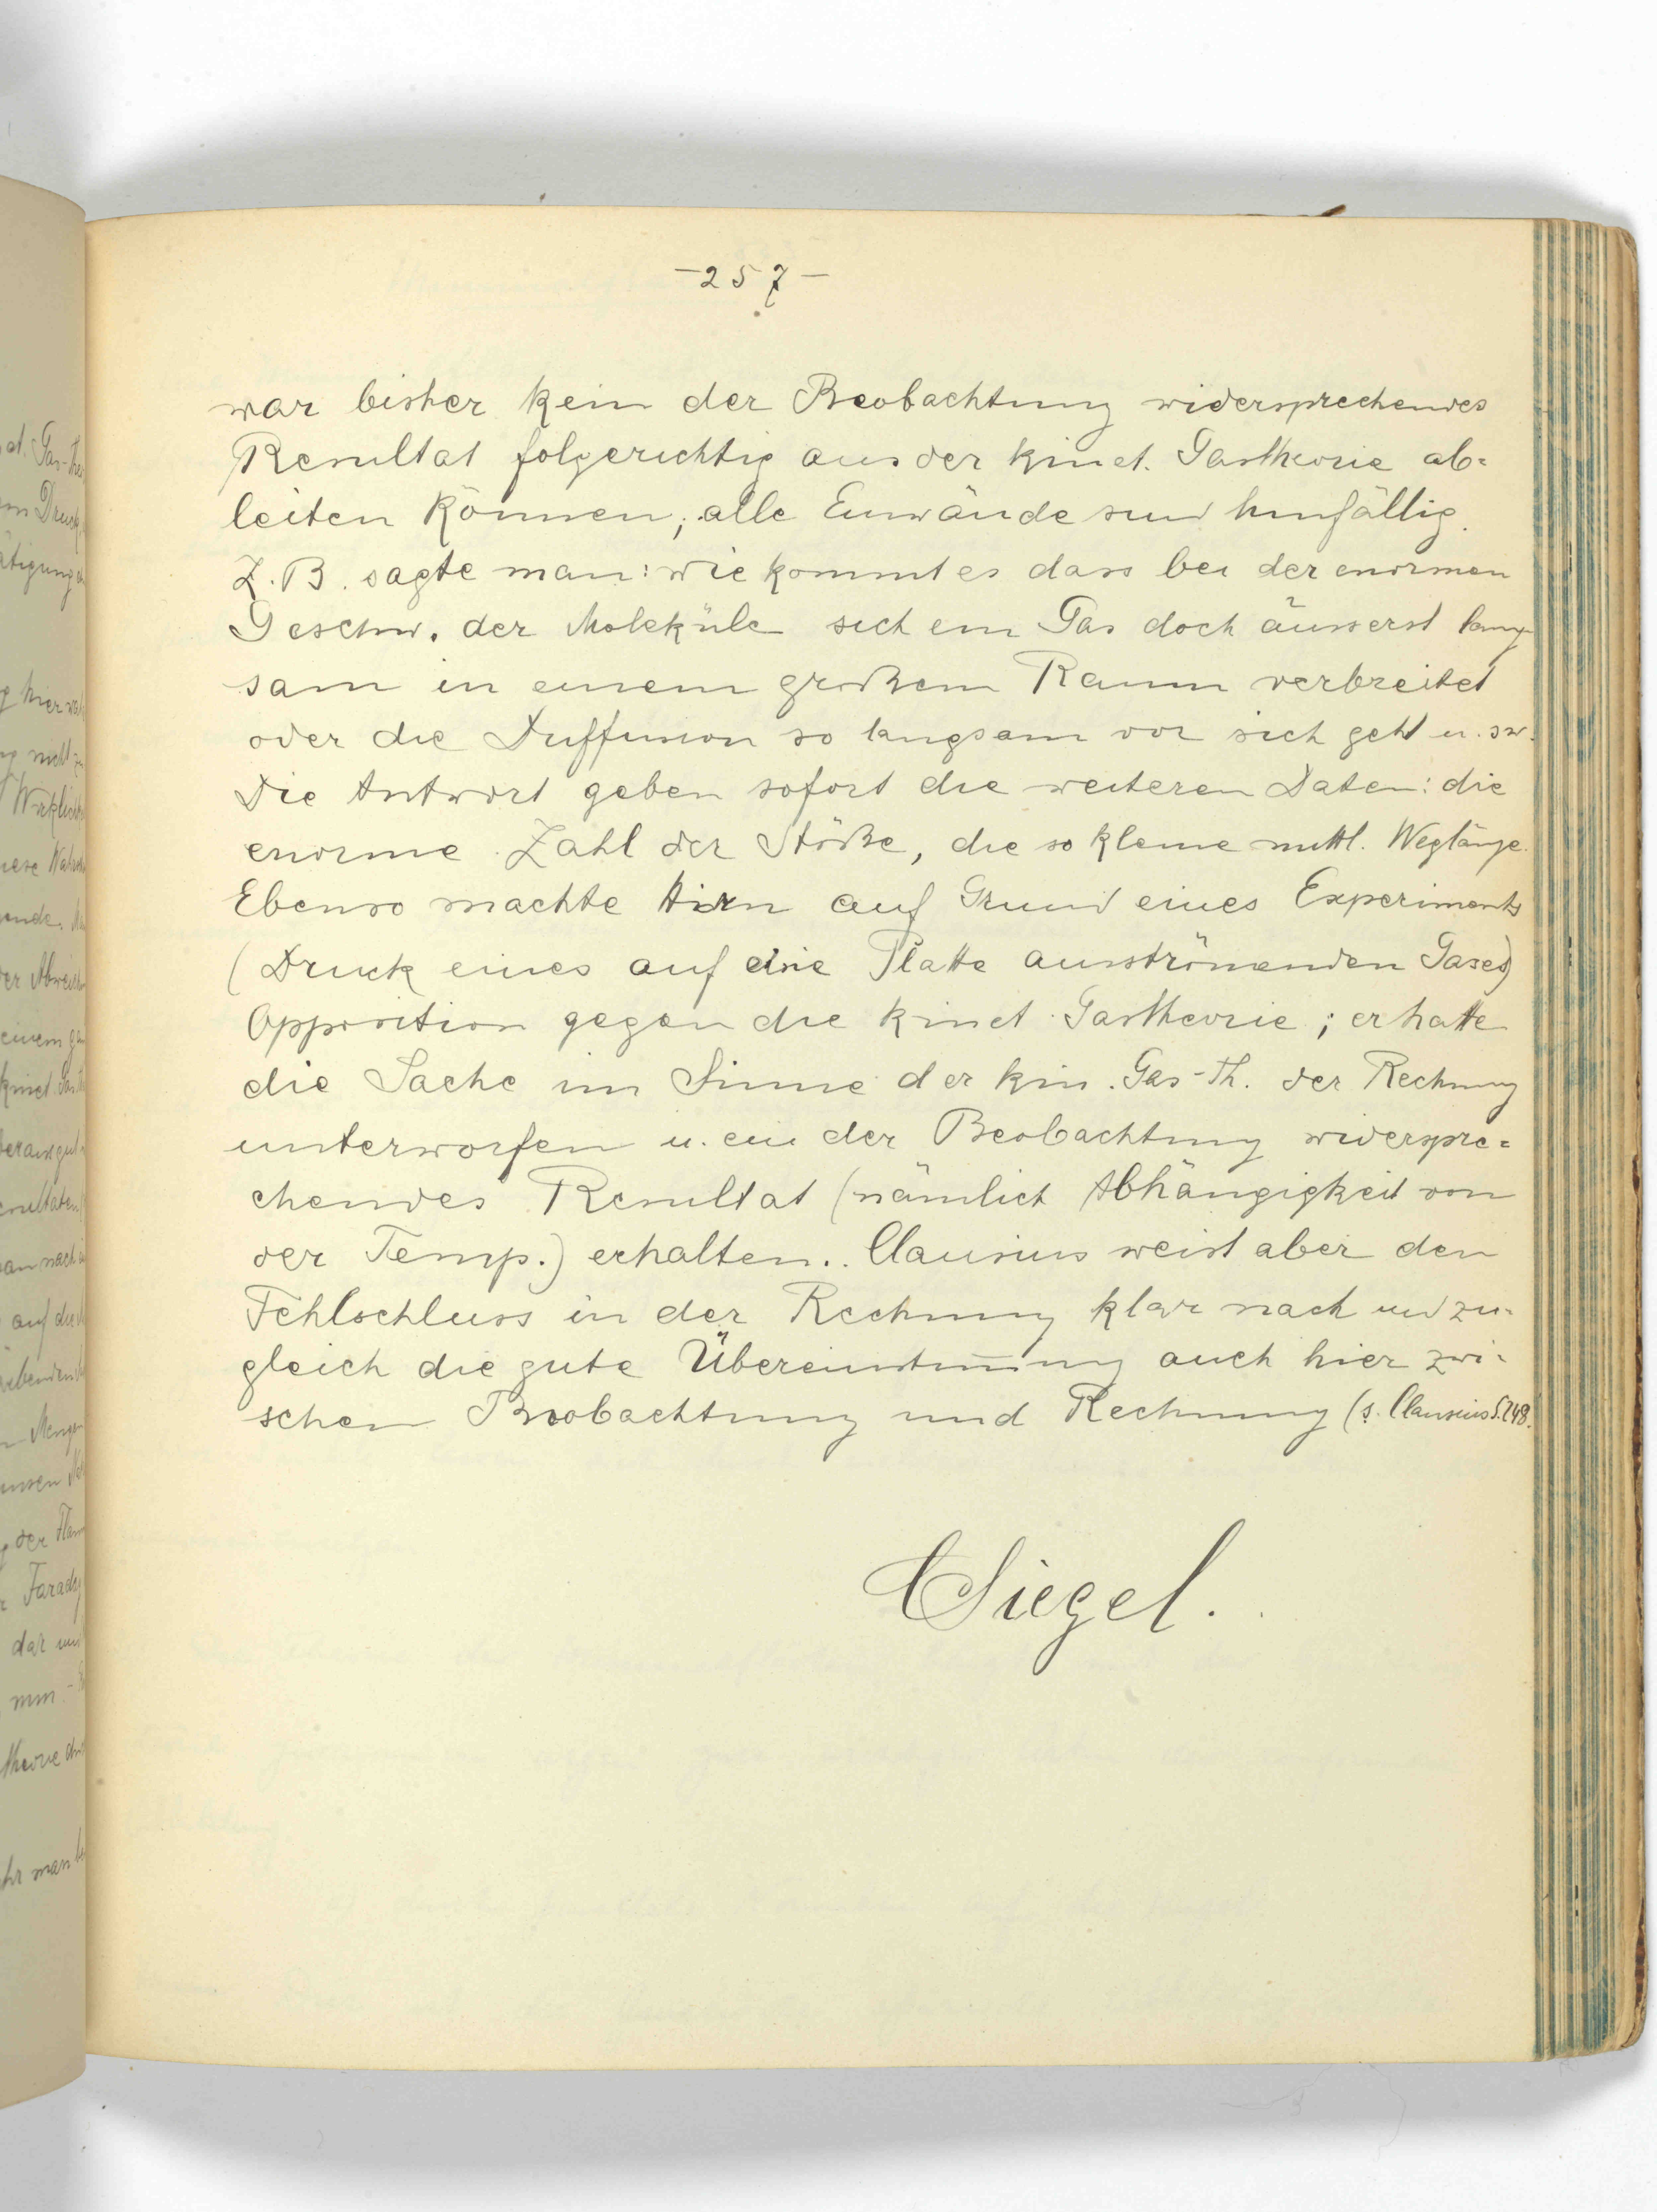 -257-
war bisher kein der Beobachtung widersprechendes
Resultat folgerichtig aus der kinet. Gastheorie ab=
leiten können; alle Einwände sind hinfällig.
Z. B. sagte man: wie kommt es dass bei der enormen
Geschw. der Moleküle sich ein Gas doch äusserst lang-
sam in einem großem Raum verbreitet
oder die Duffusion so langsam vor sich geht u. sw.
Die Antwort geben sofort die weiteren Daten: die
enorme Zahl der Stöße, die so kleine mittl. Weglänge.
Ebenso machte Hirn auf Grund eines Experiments
(Druck eines auf eine Platte ausströmenden Gases)
Opposition gegen die kinet. Gastheorie; er hatte
die Sache im Sinne der kin. Gas-Th. der Rechnung
unterworfen u. ein der Beobachtung widerspre=
chendes Resultat (nämlich Abhängigkeit von
der Temp.) erhalten.. Clausius weist aber den
Fehlschluss in der Rechnung klar nach und zu-
gleich die gute Übereinstim̄ung auch hier zwi-
schen Beobachtung und Rechnung (s. Clausius S. 248.
CSiegel.